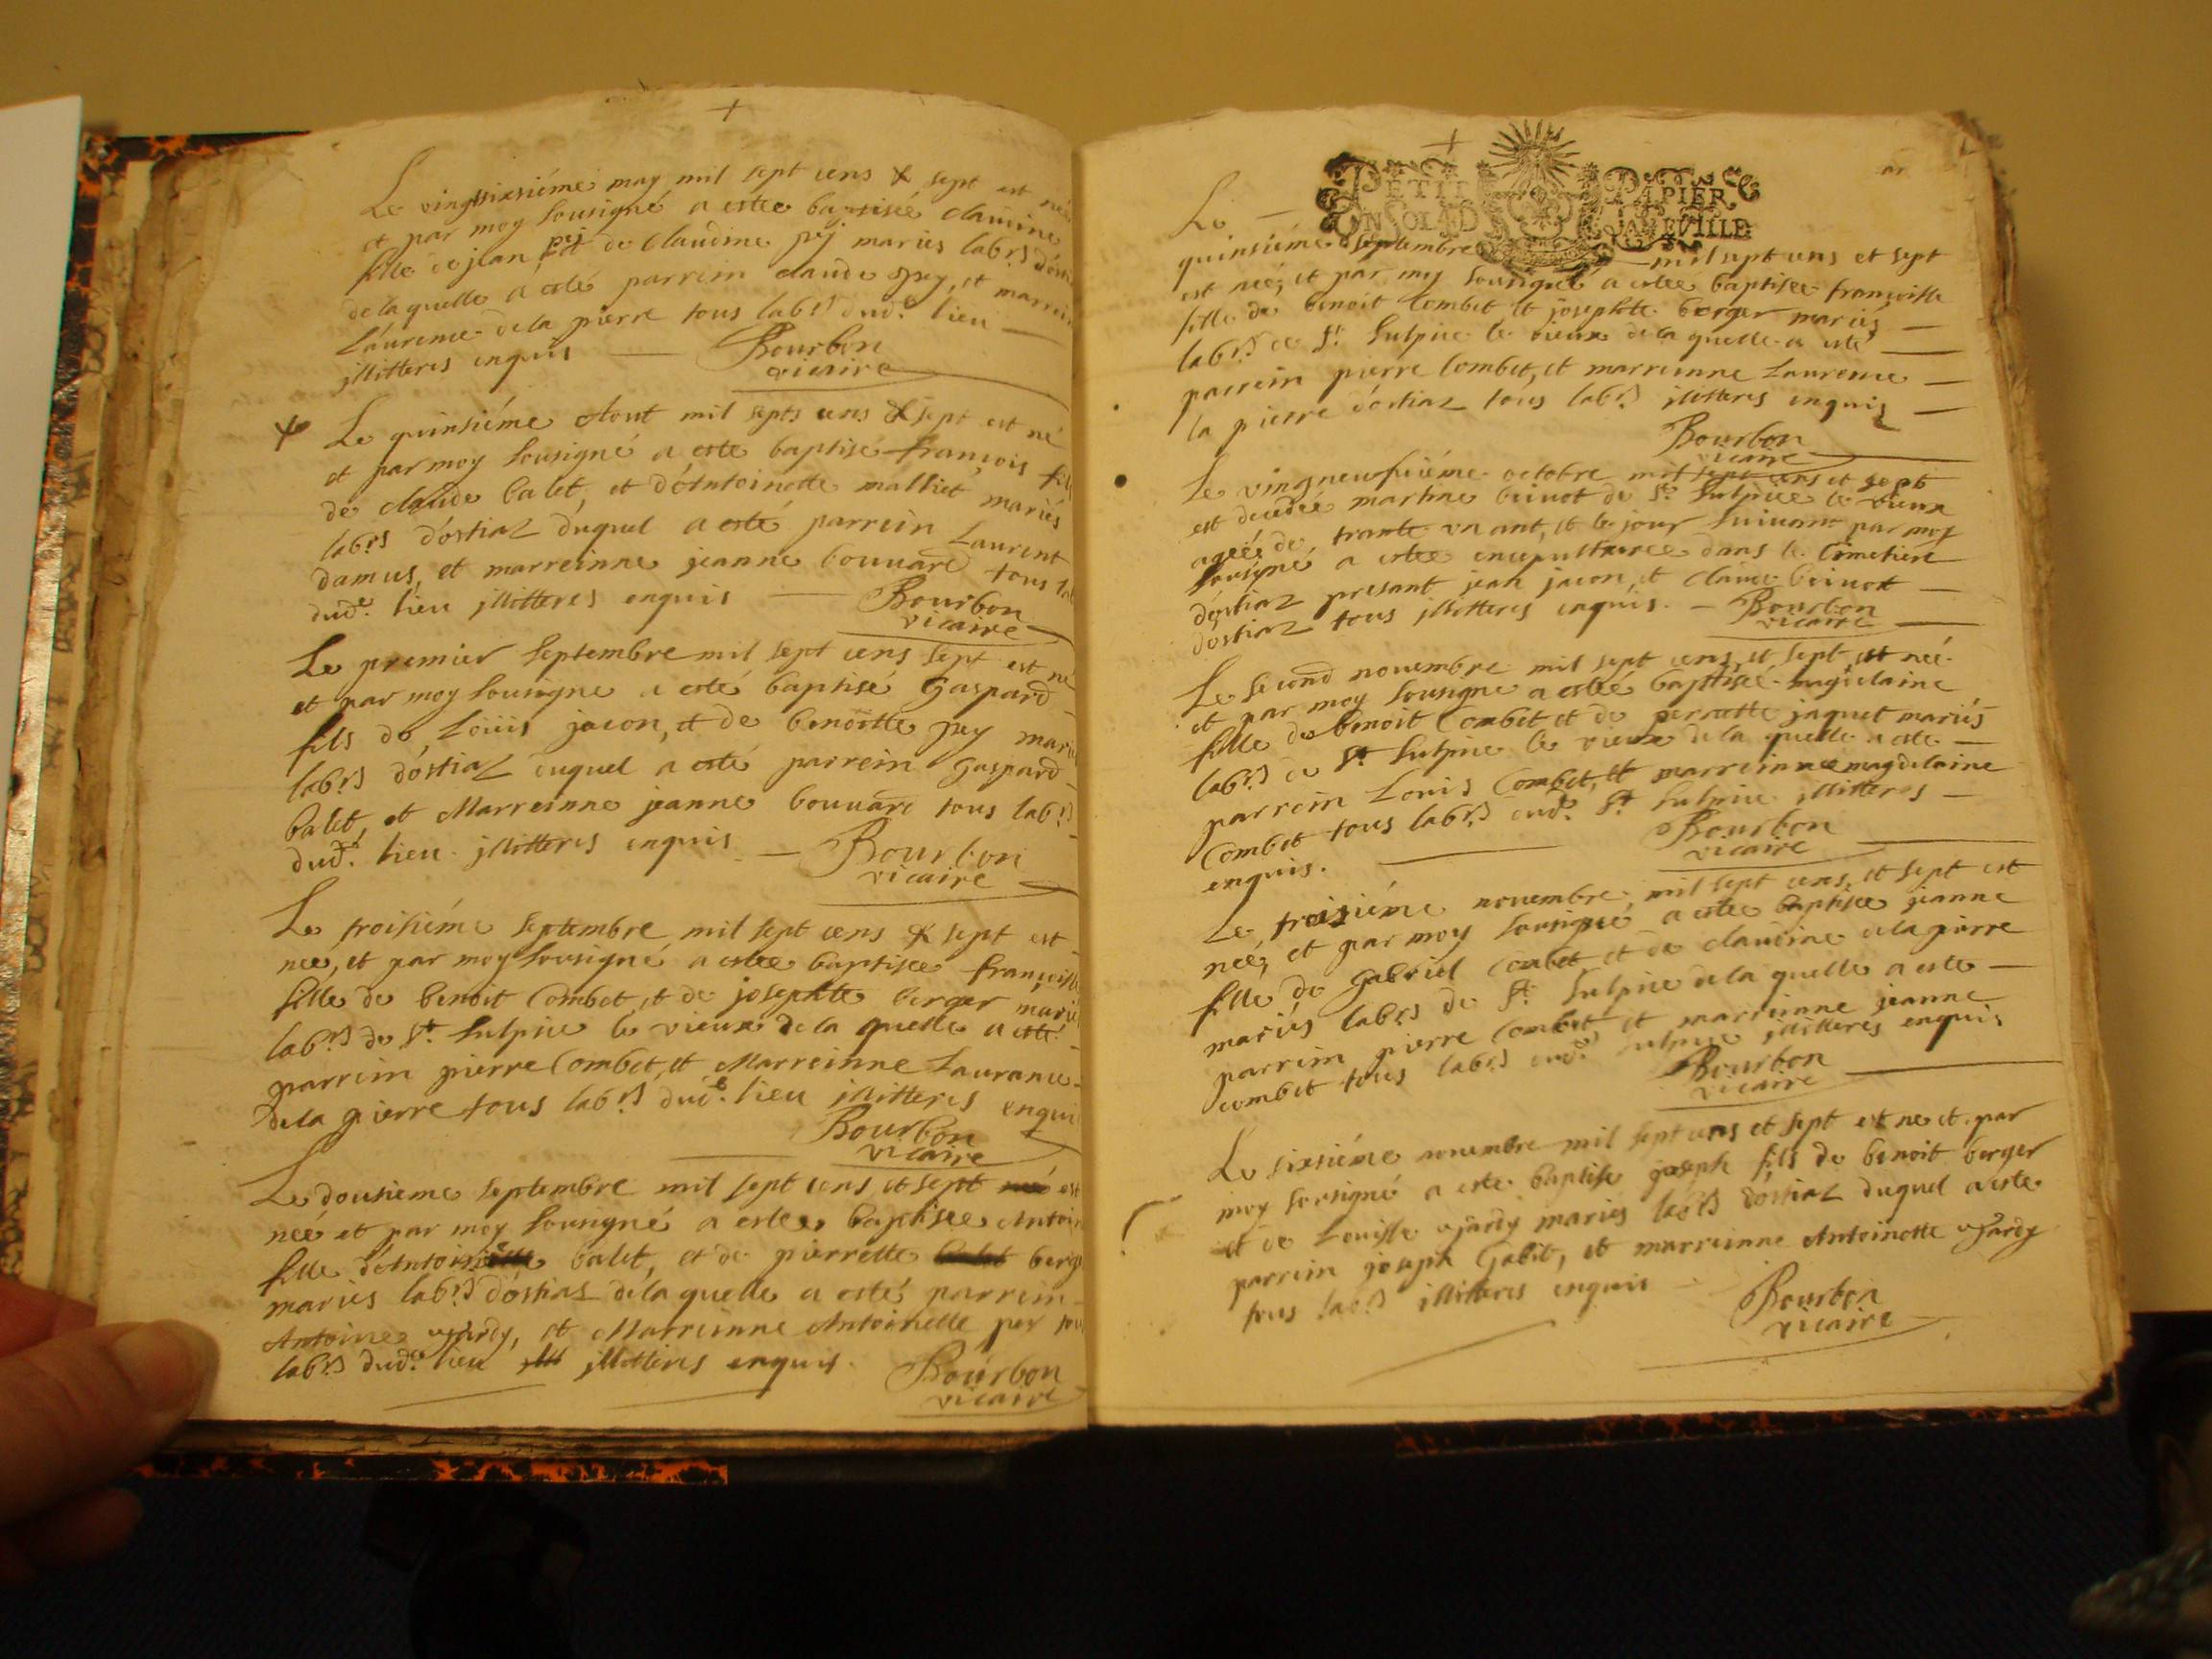 Le vingtsixsiéme may mil sept cens & sept est née
et par moy sousigné a estee baptisée claudine
fille de jean pej et de claudine pej mariés labrs dosti
de la quelle a esté parrein claude pey, et marrein
Laurence de la pierre tous labrs dude lieu
jllitteres enquis
Bourbon
vicaire
Le quinsiéme Aout mil septs cens & sept est né
et par moy sousigné a este baptisé françois fils
de claude balet, et d'Antoinette malliet mariés
labrs d'ostiaz duquel a esté parrein Laurent
damus, et marreinne jeanne bouuard tous lab
dude lieu jllitteres enquis
Bourbon
vicaire
Le premier septembre mil sept cens sept est né
et par moy sousigne a esté baptisé Gaspard
fils de Louis jacon, et de benoitte pey marié
labrs d'ostiaz duquel a esté parrein gaspard
balet, et Marreinne jeanne bouuard tous labrs
dude lieu jllitteres enquis
Bourbon
vicaire
Le troisiéme septembre mil sept cens & sept est
née, et par moy sousigné a estee baptisee françoise
fille de benoit Combet, et de josephte berger marié
labrs de St sulpice le vieux de la quelle a esté
parrein pierre Combet, et Marreinne Laurance
de la pierre tous labrs dude lieu jllitteres enqui
Bourbon
vicaire
Le dousieme septembre mil sept cens et sept est
née et par moy sousigné a estee baptisee Antoin
fille d'Antoine balet, et de pierrette berge
mariés labrs d'ostiaz de la quelle a esté parrein
Antoine jardy, et Marreinne Antoinette pey tou
labrs dude lieu jllitteres enquis.
Bourbon
vicaire
PETIT PAPIER
UN SOL
Le
quinsiéme septembre mil sept cens et sept
est née, et par moy sousigné a estee baptisee françoise
fille de benoit Combet et josephte berger mariés
labrs de St sulpice le vieux de la quelle a esté
parrein pierre Combet, et marreinne Laurence
la pierre d'ostiaz tous labrs jllitteres enquis
Bourbon
vicaire
Le vingneufuiéme octobre mil sept cens et sept
est decedée martine briuot de St sulpice le vieux
ageée de trante un ant, et le jour suivant par moy
sousigné a estee ensepulturee dans le Cimetiére
d'ostiaz presant jean jacon, et claude briuot
d'ostiaz tous jllitteres enquis.
Bourbon
vicaire
Le second novembre mil sept cens, et sept, est née
et par moy sousigne a esteé baptisée magdelaine
fille de benoit Combet et de perrette jaquet mariés
labrs de St sulpice le vieux de la quelle a este
parrein Louis Combet, et marreinne magdelaine
Combet tous labrs dude St sulpice jllitteres
enquis.
Bourbon
vicaire
Le troisiéme novembre, mil sept cens, et sept est
née, et par moy sousigné a estee baptisee jeanne
fille de gabriel Combet et de claudine de la pierre
mariés labrs de St sulpice de la quelle a este
parrein pierre Combet, et marreinne jeanne
combet tous labrs dude sulpice jllitteres enquis
Bourbon
vicaire
Le sixsiéme novembre mil sept cens et sept est ne et par
moy sousigné a este baptise joseph fils de benoit berger
et de Louisse jardy mariés labrs d'ostiaz duquel a este
parrein joseph Gabet, et marreinne Antoinette jardy
tous labrs jllitteres enquis
Bourbon
vicaire